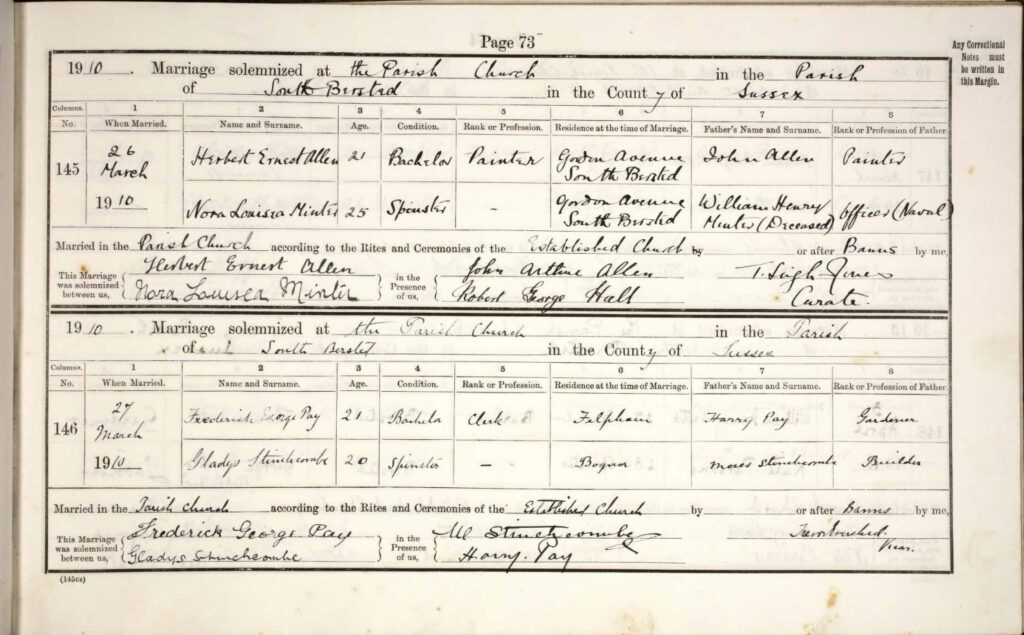 Page 73
Any Correctional
Notes must
be written in
this Margin.
1910. Marriage solemnized at the Parish Church in the Parish
of South Bersted in the County of Sussex
Columns. 1 2 3 4 5 6 7 8
No. When Married. Name and Surname. Age. Condition. Rank or Profession. Residence at the time of Marriage. Father's Name and Surname. Rank or Profession of Father.
145 26 March 1910
Herbert Ernest Allen 21 Bachelor Painter Gordon Avenue South Bersted John Allen Painter
Nora Louisea Minter 25 Spinster - Gordon Avenue South Bersted William Henry Minter (Deceased) Officer (Naval)
Married in the Parish Church according to the Rites and Ceremonies of the Established Church by or after Banns by me,
This Marriage was solemnized between us,
Herbert Ernest Allen
Nora Louisea Minter
in the Presence of us,
John Arthur Allen
Robert George Hall
Curate.
1910. Marriage solemnized at the Parish Church in the Parish
of South Bersted in the County of Sussex
Columns. 1 2 3 4 5 6 7 8
No. When Married. Name and Surname. Age. Condition. Rank or Profession. Residence at the time of Marriage. Father's Name and Surname. Rank or Profession of Father.
146 27 March 1910
Frederick George Pay 21 Bachelor Clerk Felpham Harry Pay Gardener
Gladys Stinchcombe 20 Spinster - Bognor Moses Stinchcombe Builder
Married in the Parish Church according to the Rites and Ceremonies of the Established Church by or after Banns by me,
This Marriage was solemnized between us,
Frederick George Pay
Gladys Stinchcombe
in the Presence of us,
M Stinchcombe
Harry Pay
Vicar.
(145cs)